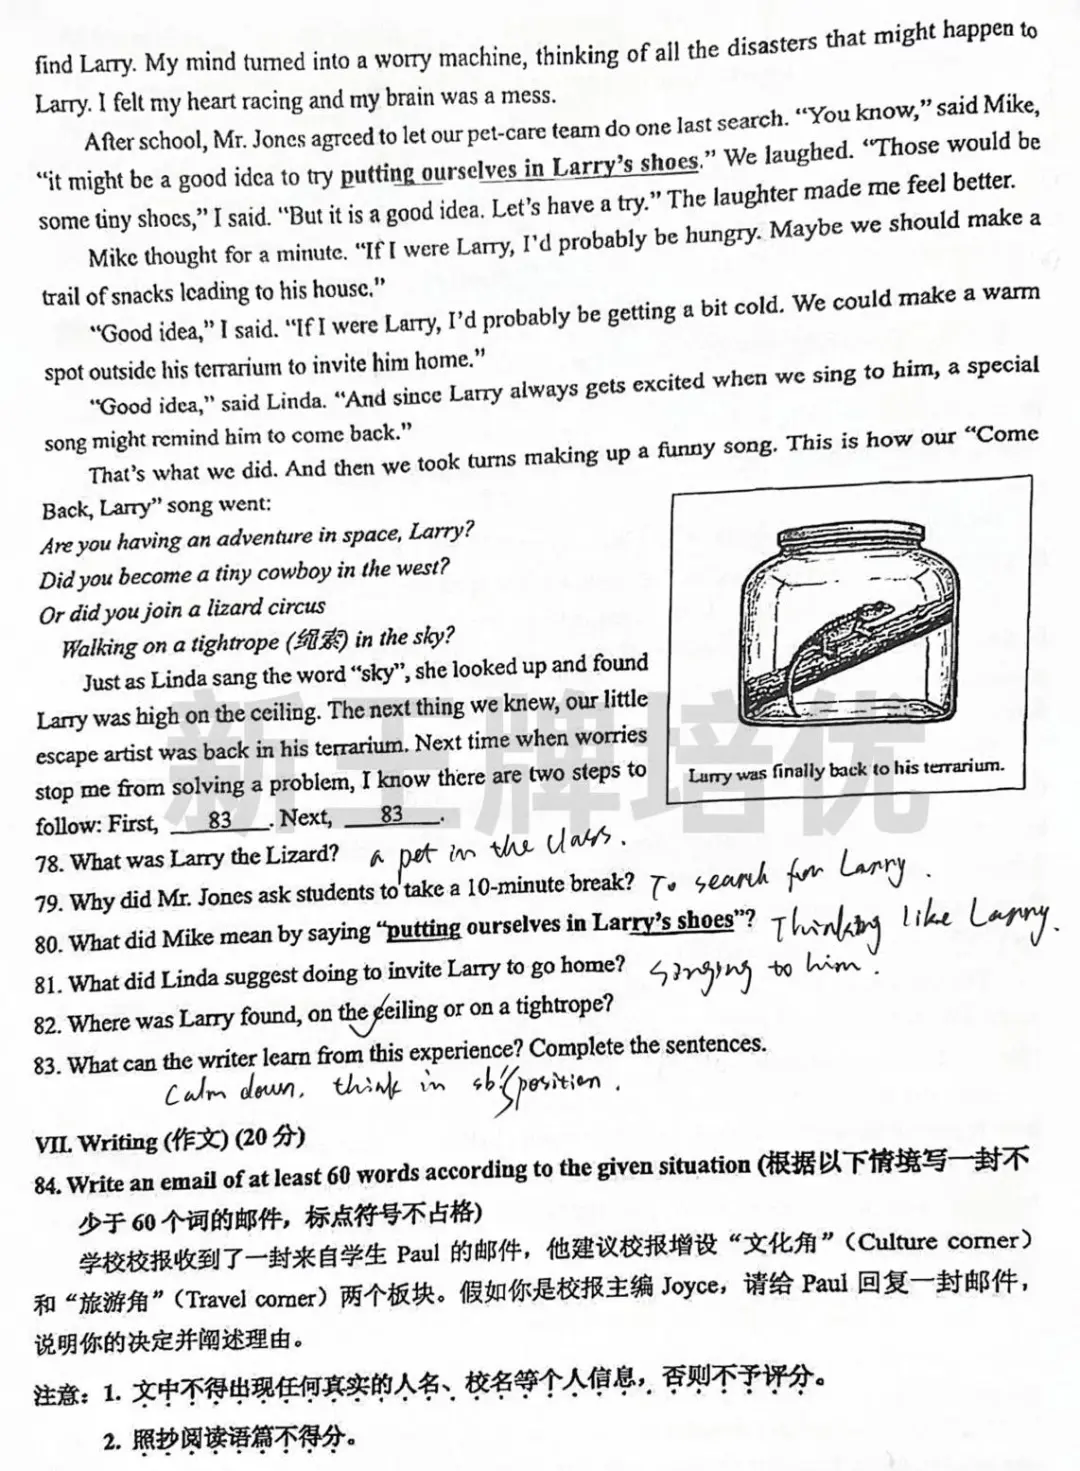 find Larry. My mind turned into a worry machine, thinking of all the disasters that might happen to
Larry. I felt my heart racing and my brain was a mess.
After school, Mr. Jones agreed to let our pet-care team do one last search. “You know,” said Mike,
“it might be a good idea to try putting ourselves in Larry’s shoes.” We laughed. “Those would be
some tiny shoes,” I said. “But it is a good idea. Let’s have a try.” The laughter made me feel better.
Mike thought for a minute. “If I were Larry, I’d probably be hungry. Maybe we should make a
trail of snacks leading to his house.”
“Good idea,” I said. “If I were Larry, I’d probably be getting a bit cold. We could make a warm
spot outside his terrarium to invite him home.”
“Good idea,” said Linda. “And since Larry always gets excited when we sing to him, a special
song might remind him to come back.”
That’s what we did. And then we took turns making up a funny song. This is how our “Come
Back, Larry” song went:
Are you having an adventure in space, Larry?
Did you become a tiny cowboy in the west?
Or did you join a lizard circus
Walking on a tightrope (绳索) in the sky?
Just as Linda sang the word “sky”, she looked up and found
Larry was high on the ceiling. The next thing we knew, our little
escape artist was back in his terrarium. Next time when worries
stop me from solving a problem, I know there are two steps to
follow: First, 83 . Next, 83 .
Larry was finally back to his terrarium.
78. What was Larry the Lizard? a pet in the class.
79. Why did Mr. Jones ask students to take a 10-minute break? To search for Larry.
80. What did Mike mean by saying “putting ourselves in Larry’s shoes”? Thinking like Larry.
81. What did Linda suggest doing to invite Larry to go home? singing to him.
82. Where was Larry found, on the ceiling or on a tightrope?
83. What can the writer learn from this experience? Complete the sentences.
Calm down. think in sb's position.
VII. Writing (作文) (20 分)
84. Write an email of at least 60 words according to the given situation (根据以下情境写一封不
少于 60 个词的邮件，标点符号不占格)
学校校报收到了一封来自学生 Paul 的邮件，他建议校报增设“文化角”（Culture corner）
和“旅游角”（Travel corner）两个板块。假如你是校报主编 Joyce，请给 Paul 回复一封邮件，
说明你的决定并阐述理由。
注意：1. 文中不得出现任何真实的人名、校名等个人信息，否则不予评分。
2. 照抄阅读语篇不得分。
新王牌培优